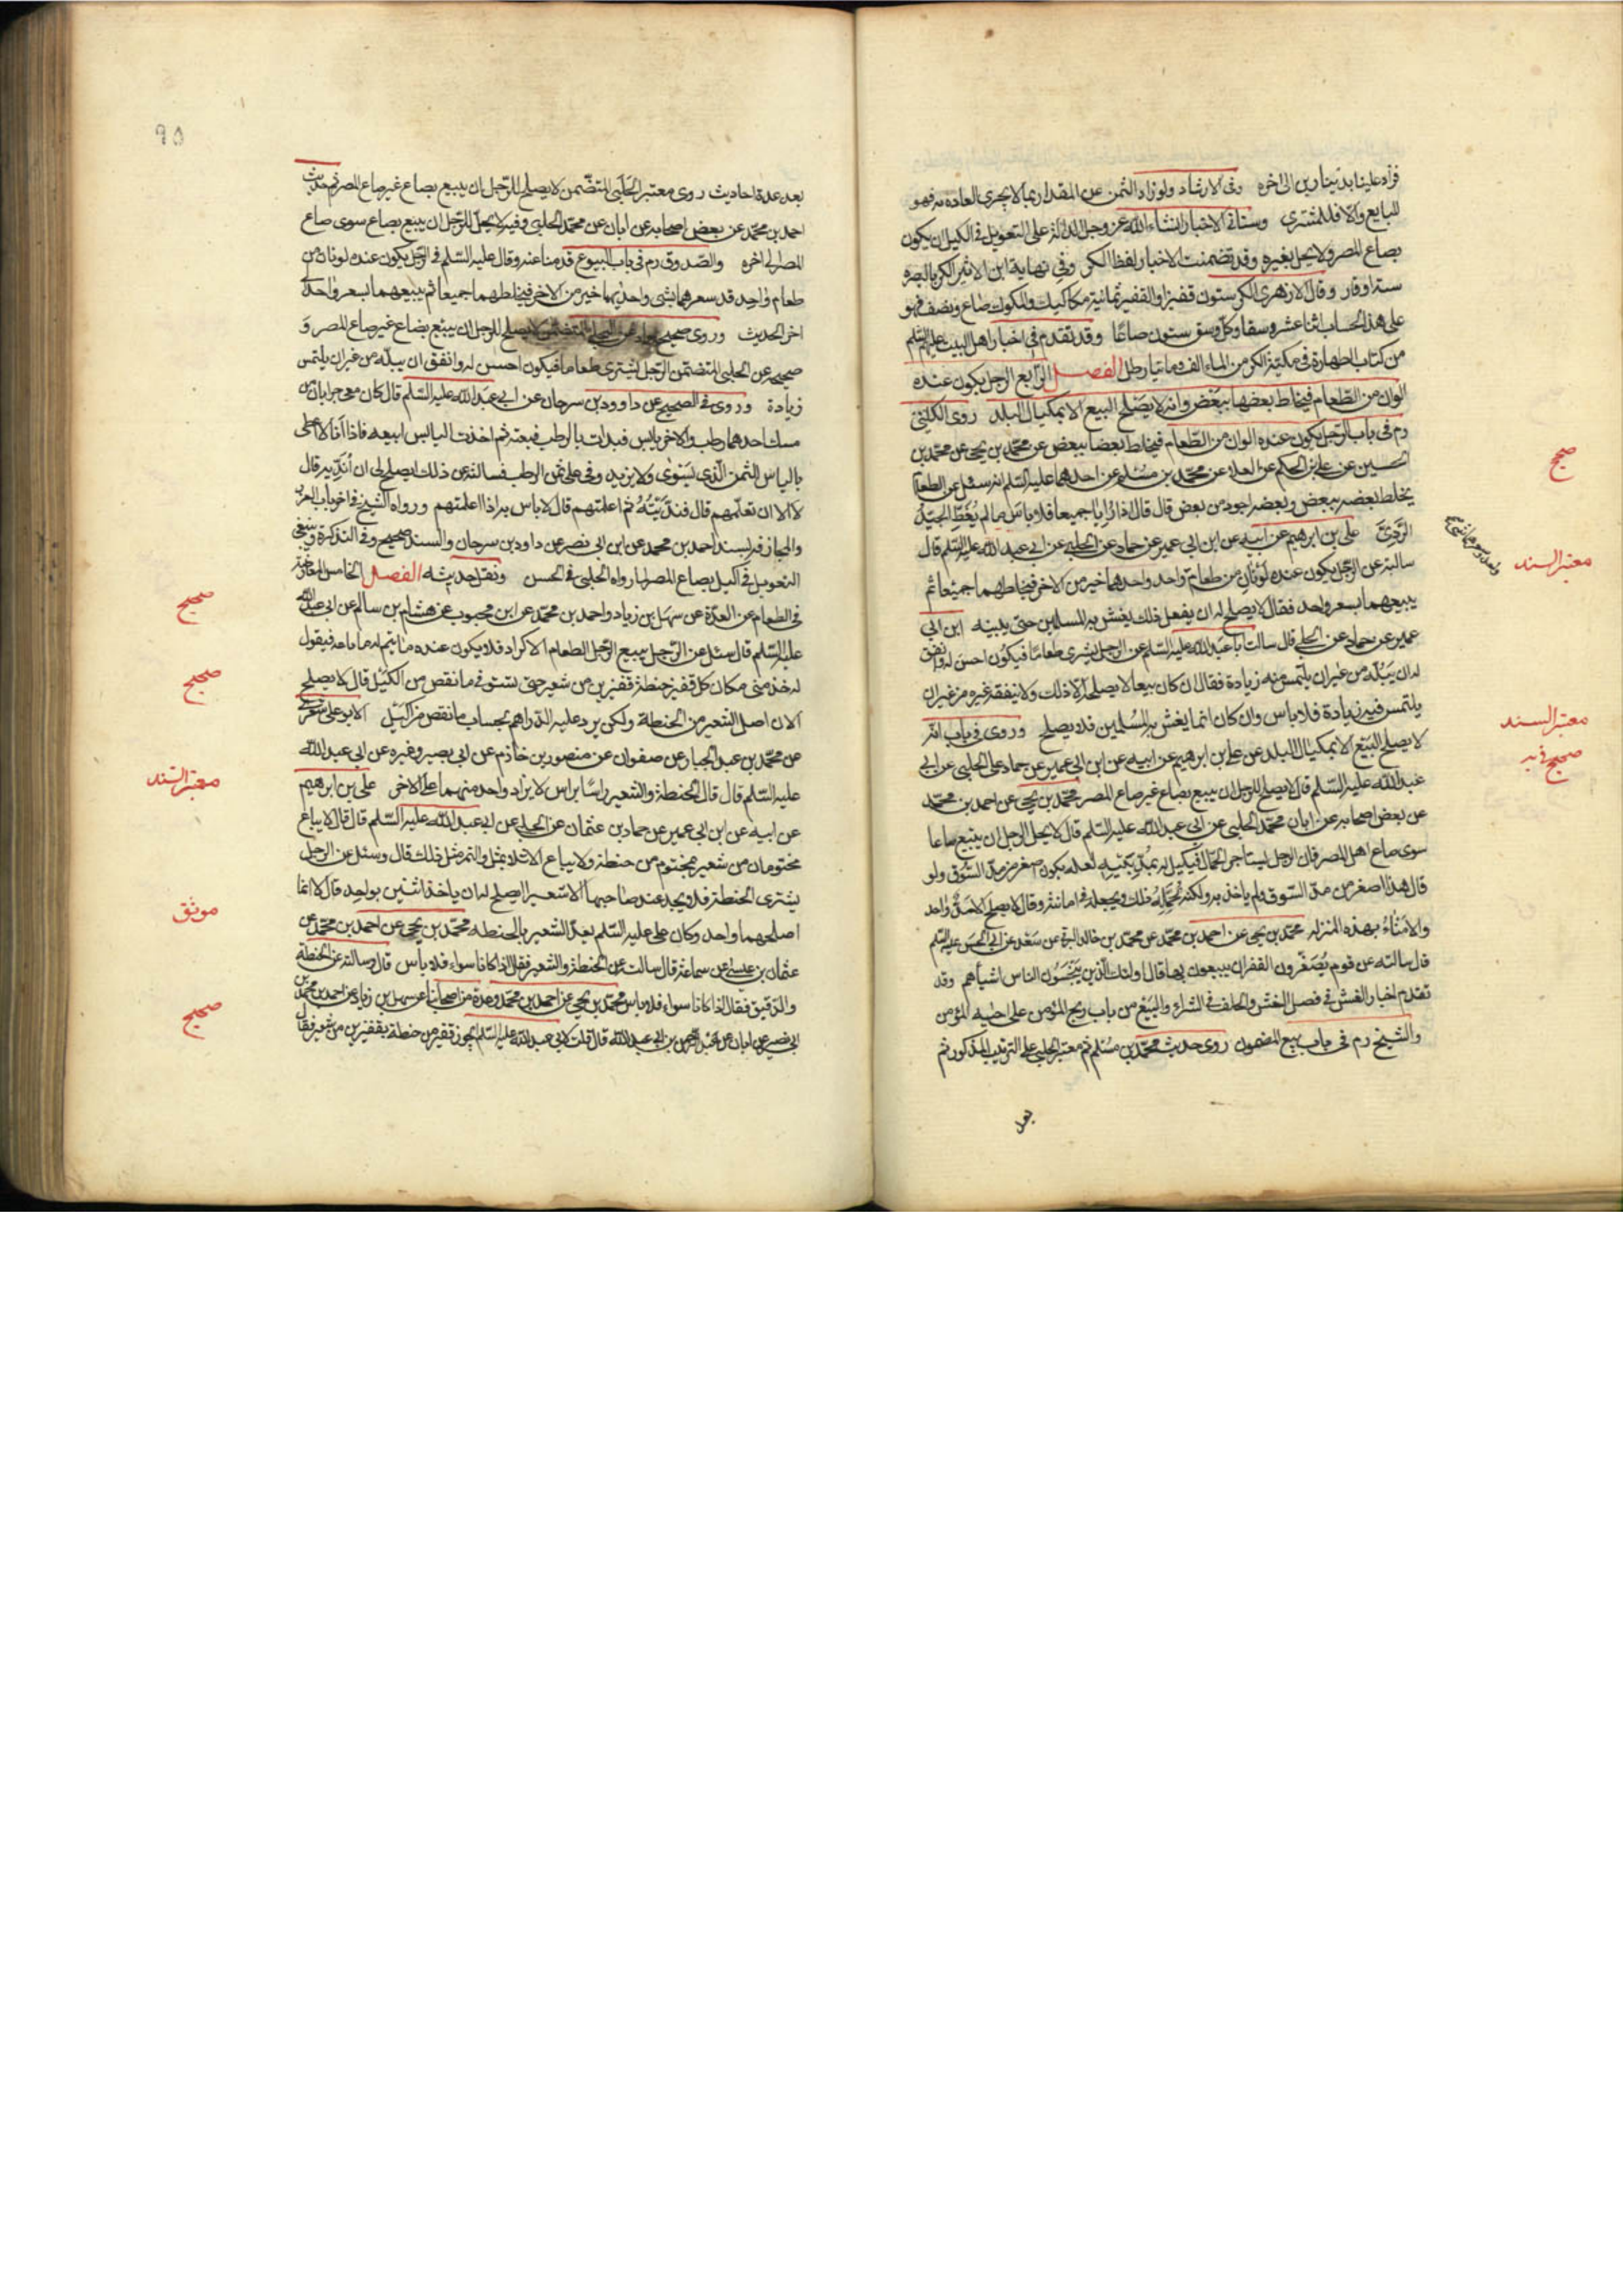 فزاد علينا بدينارين الى اخره وفى الارشاد ولو زاد الثمن عن المقدار بما لا يجرى العادة به فهو
للبايع والا فللمشترى وستاتى الاخبار انشاء الله عز وجل الدالة على التعويل فى الكيل ان يكون
بصاع المصر ولا يحل بغيره وقد تضمنت الاخبار لفظ الكر وفى نهاية ابن الاثير الكر بالبصرة
ستة اوقار وقال الازهرى الكر ستون قفيزا والقفيز ثمانية مكاكيك والمكوك صاع ونصف فهو
على هذا الحساب اثنا عشر وسقا وكل وسق ستون صاعا وقد تقدم فى اخبار اهل البيت عليهم السلم
من كتاب الطهارة فى مكية الكر من الماء الف وماتيا رطل الفصل الرابع الرجل يكون عنده
الوان من الطعام فيخلط بعضها ببعض وانه لا يصلح البيع الا بمكيال البلد روى الكلينى
رم فى باب الرجل يكون عنده الوان من الطعام فيخلط بعضا ببعض عن محمد بن يحيى عن محمد بن
الحسين عن على بن الحكم عن العلا عن محمد بن مسلم عن احدهما عليه السلم انه سئل عن الطعام
يخلط بعضه ببعض وبعضه اجود من بعض قال قال اذا رايا جميعا فلا باس ما لم يغط الجيد
الردى على بن ابرهيم عن ابيه عن ابن ابى عمير عن حماد عن الحلبى عن ابى عبد الله عليه السلم قال
سالته عن الرجل يكون عنده لونان من طعام واحد واحدهما خير من الاخر فيخلطهما جميعا ثم
يبيعهما بسعر واحد فقال لا يصلح له ان يفعل ذلك يغش به المسلمين حتى يبينه ابن ابى
عمير عن حماد عن الحلبى قال سالت ابا عبد الله عليه السلم عن الرجل يشترى طعاما فيكون احسن له وانفق
له ان يبله من غير ان يلتمس منه زيادة فقال ان كان بيعا لا يصلحه الا ذلك ولا ينفقه غيره من غير ان
يلتمس فيه زيادة فلا باس وان كان انما يغش به المسلمين فلا يصلح وروى فى باب انه
لا يصلح البيع الا بمكيال البلد عن على بن ابرهيم عن ابيه عن ابن ابى عمير عن حماد عن الحلبى عن ابى
عبد الله عليه السلم قال لا يصلح للرجل ان يبيع بصاع غير صاع المصر محمد بن يحيى عن احمد بن محمد
عن بعض اصحابه عن ابان عن محمد الحلبى عن ابى عبد الله عليه السلم قال لا يحل للرجل ان يبيع صاعا
سوى صاع اهل المصر فان الرجل يستاجر الحمال فيكيل له بمد بيته لعله يكون اصغر من مد السوق ولو
قال هذا اصغر من مد السوق لم ياخذ به ولكنه يحمله ذلك ويجعله فى امانته وقال لا يصلح الا مد واحد
والامناء بهذه المنزلة محمد بن يحيى عن احمد بن محمد عن محمد بن خالد البرقى عن سعد عن ابى الحسن عليه السلم
قال سالته عن قوم يصغرون القفزان يبيعون بها قال اولئك الذين يبخسون الناس اشياهم وقد
تقدم اخبار الغش فى فصل الغش والحلف فى الشراء والبيع من باب ربح المؤمن على اخيه المؤمن
والشيخ رم فى باب بيع المضمون روى حديث محمد بن مسلم ثم معتبر الحلبى على الترتيب المذكور ثم
بعد
صحيح
معتبر السند
معتبر السند
صحيح
٩٥
بعد عدة احاديث روى معتبر الحلبى المتضمن لا يصلح للرجل ان يبيع بصاع غير صاع المصر ثم حديث
احمد بن محمد عن بعض اصحابه عن ابان عن محمد الحلبى وفيه لا يحل للرجل ان يبيع بصاع سوى صاع
المصر الى اخره والصدوق رم فى باب البيوع قدمنا عنه وقال عليه السلم فى الرجل يكون عنده لونان من
طعام واحد قد سعرهما بشى واحدهما خير من الاخر فيخلطهما جميعا ثم يبيعهما بسعر واحد
اخر الحديث وروى صحيح حماد عن الحلبى المتضمن لا يصلح للرجل ان يبيع بصاع غير صاع المصر و
صحيحه عن الحلبى المتضمن الرجل يشترى طعاما فيكون احسن له وانفق ان يبله من غير ان يلتمس
زيادة وروى فى الصحيح عن داوود بن سرحان عن ابى عبد الله عليه السلم قال كان معى جرابان من
مسك احدهما رطب والاخر يابس فبدات بالرطب فبعته ثم اخذت اليابس ابيعه فاذا انا لا اعطى
باليابس الثمن الذى يسوى ولا يزيدونى على ثمن الرطب فسالته عن ذلك ايصلح لى ان انديه قال
لا الا ان تعلمهم قال فنديته ثم اعلمتهم قال لا باس به اذا اعلمتهم ورواه الشيخ فى اخر باب الغرر
والمجازفة بسند احمد بن محمد عن ابن ابى نصر عن داود بن سرحان والسند صحيح وفى التذكرة وينبغى
التعويل فى الكيل بصاع المصر لما رواه الحلبى فى الحسن ونقل حديثه الفصل الخامس المعاوضة
فى الطعام عن العدة عن سهل بن زياد واحمد بن محمد عن ابن محبوب عن هشام بن سالم عن ابى عبد الله
عليه السلم قال سئل عن الرجل يبيع الرجل الطعام الاكرار فلا يكون عنده ما يتم له ما باعه فيقول
له خذ منى مكان كل قفيز حنطة قفيزين من شعير حتى تستوفى ما نقص من الكيل قال لا يصلح
لان اصل الشعير من الحنطة ولكن يرد عليه الدراهم بحساب ما نقص من الكيل ابو على الاشعرى
عن محمد بن عبد الجبار عن صفوان عن منصور بن حازم عن ابى بصير وغيره عن ابى عبد الله
عليه السلم قال قال الحنطة والشعير راسا براس لا يزاد واحد منهما على الاخر على بن ابرهيم
عن ابيه عن ابن ابى عمير عن حماد بن عثمان عن الحلبى عن ابى عبد الله عليه السلم قال قال لا يباع
مختومان من شعير بمختوم من حنطة ولا يباع الا مثلا بمثل والتمر مثل ذلك قال وسئل عن الرجل
يشترى الحنطة فلا يجد عند صاحبها الا شعيرا ايصلح له ان ياخذ اثنين بواحد قال لا انما
اصلهما واحد وكان على عليه السلم يعد الشعير بالحنطه محمد بن يحيى عن احمد بن محمد عن
عثمان بن عيسى عن سماعة قال سالته عن الحنطة والشعير فقال اذا كانا سواء فلا باس قال وسالته عن الحنطة
والدقيق فقال اذا كانا سواء فلا باس محمد بن يحيى عن احمد بن محمد وعدة من اصحابنا عن سهل بن زياد عن احمد بن محمد بن
ابى نصر عن ابان عن عبد الرحمن بن ابى عبد الله قال قلت لابى عبد الله عليه السلم ايجوز قفيز من حنطة بقفيزين من شعير فقال
صحيح
صحيح
معتبر السند
موثق
صحيح